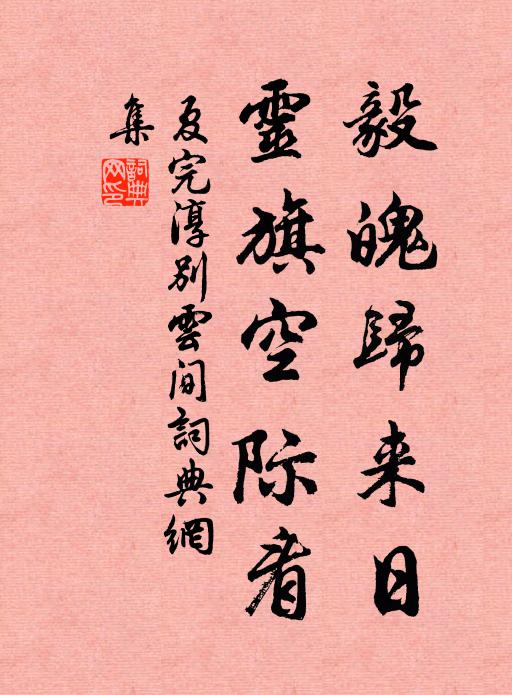 毅魄歸来日
靈旗空际看
夏完淳別雲间詞典網
集
詞典
网印